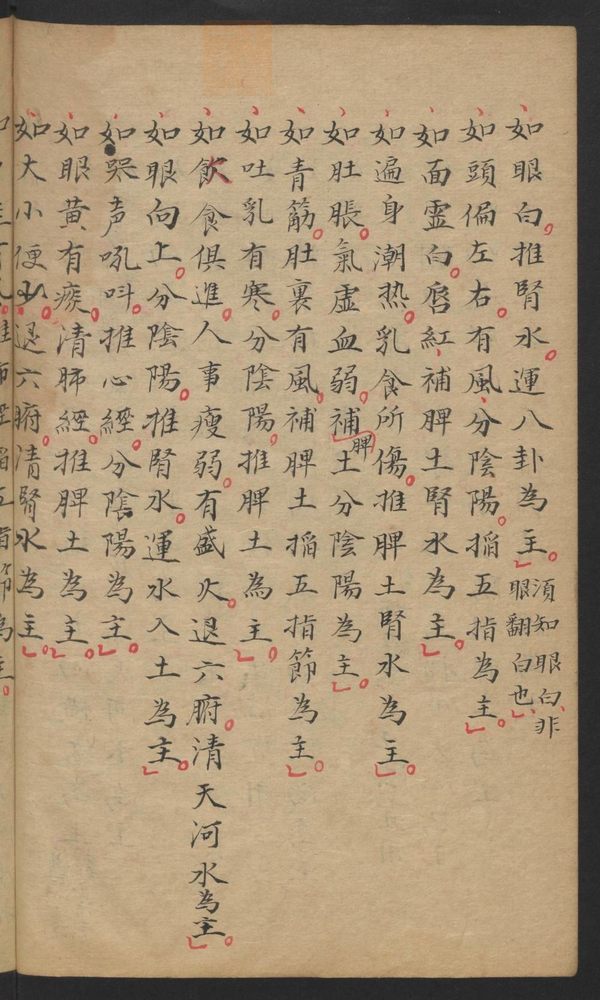 如眼白。推腎水。運八卦為主。須知眼白、非眼翻白也、
如頭偏左右。有風、分陰陽。搯五指為主。
如面靈白。唇紅、補脾土腎水為主。
如遍身潮热。乳食所傷。推脾土腎水為主。
如肚脹。氣虛血弱。補脾土分陰陽為主。
如青筋。肚裏有風。補脾土搯五指節為主。
如吐乳有寒。分陰陽。推脾土為主。
如飲食俱進。人事瘦弱。有盛火。退六腑。清天河水為主。
如眼向上。分陰陽。推腎水。運水入土為主。
如哭声吼呌。推心經。分陰陽為主。
如眼黄有痰。清肺經。推脾土為主。
如大小便少。退六腑。清腎水為主。